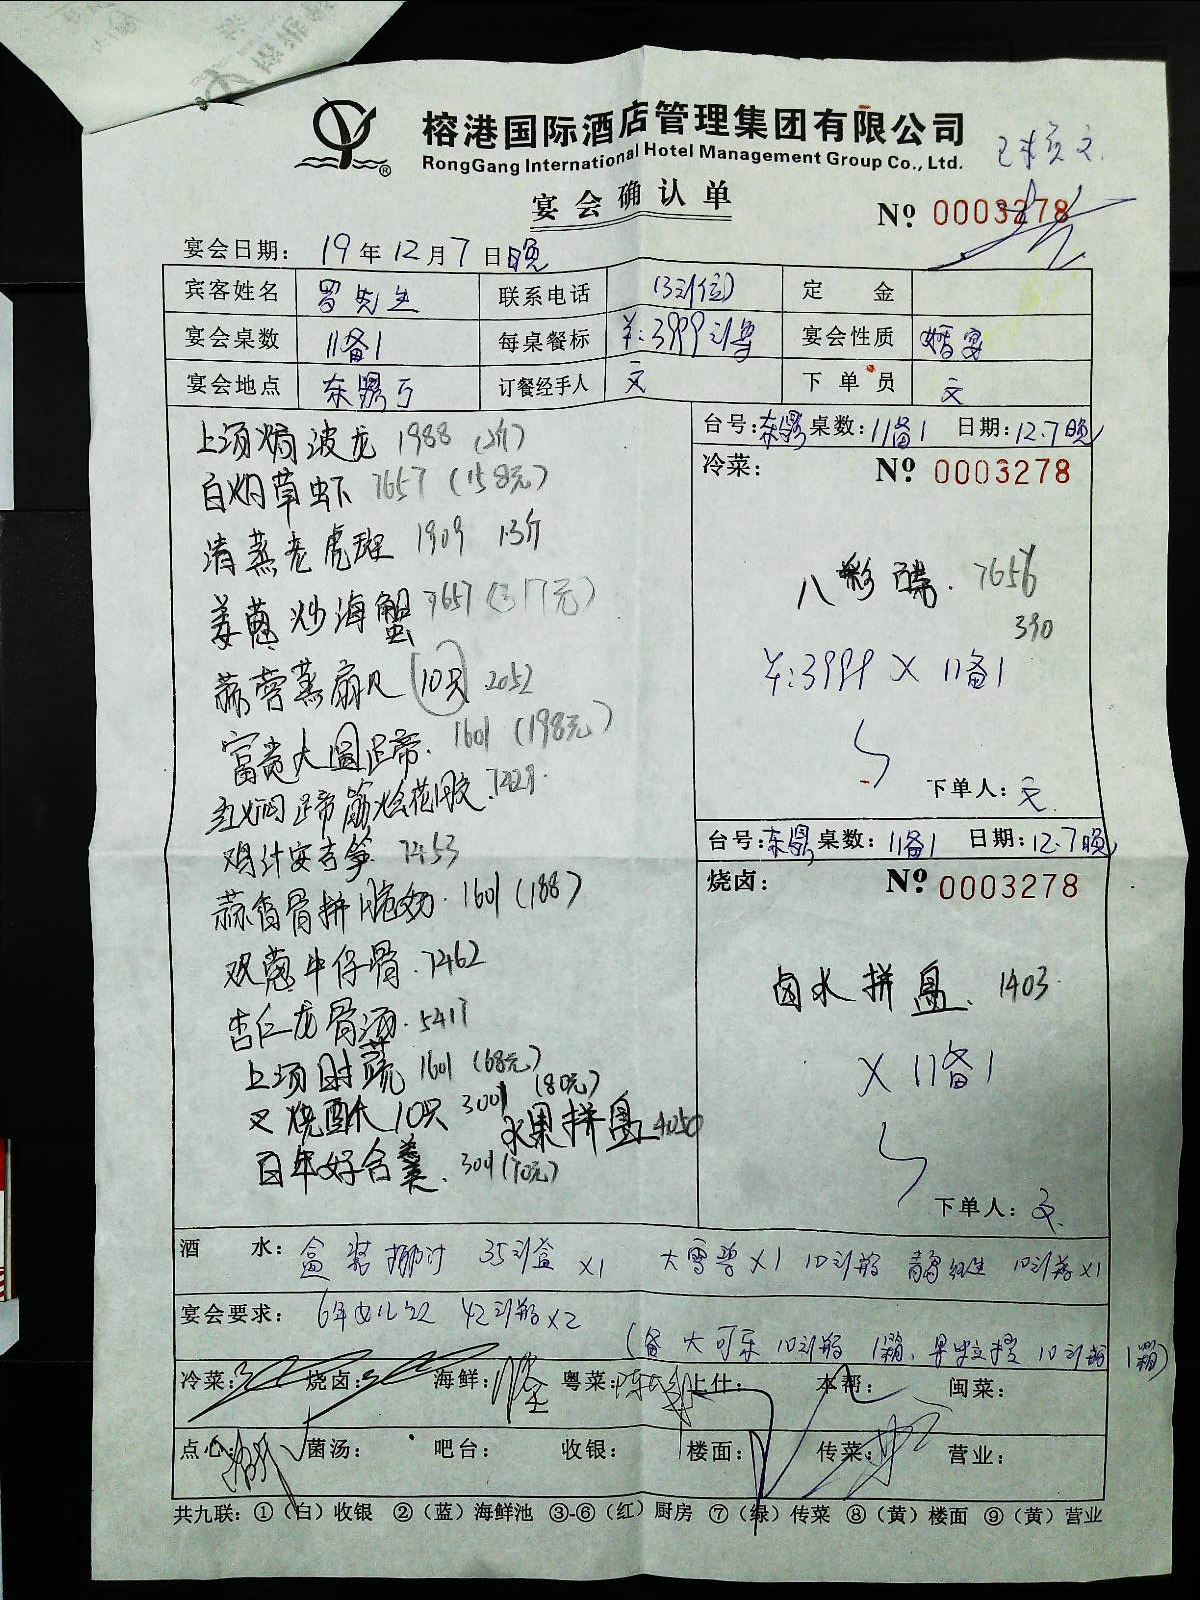 榕港国际酒店管理集团有限公司
RongGang International Hotel Management Group Co., Ltd.
宴会确认单
№ 0003278
宴会日期: 19年12月7日晚
宾客姓名 罗先生 联系电话 定金
宴会桌数 11备1 每桌餐标 ¥:3999 宴会性质 婚宴
宴会地点 东鼎 订餐经手人 文 下单员 文
台号:东鼎 桌数: 11备1 日期: 12.7晚
上汤焗波龙 1988
冷菜: № 0003278
白灼草虾 7657 (158元)
清蒸老虎斑 1909 1.3斤
八彩碟. 7656
390
姜葱炒海蟹 7657
蒜蓉蒸扇贝 (10只) 2052
¥:3999 X 11备1
富贵大圆蹄. 1601 (198元)
下单人: 文
红焖蹄筋烩花胶. 7429.
台号:东鼎 桌数: 11备1 日期: 12.7晚
鸡汁安吉笋 7453
烧卤: № 0003278
蒜香骨拼 1601 (188)
双葱牛仔骨. 7462
卤水拼盘. 1403.
杏仁龙骨汤. 5417
上汤时蔬 1601 (68元)
X 11备1
叉烧酥 10只 3001 (80元)
水果拼盘 4050
百年好合羹. 3001 (70元)
下单人: 文
酒水: 盒装椰汁 35 x1 大雪碧 x1 10 10 x1
宴会要求: 6年女儿红 42 x2
(备大可乐 10 1箱. 10 1箱)
冷菜: 烧卤: 海鲜: 粤菜: 上什: 本帮: 闽菜:
点心: 菌汤: 吧台: 收银: 楼面: 传菜: 营业:
共九联: ①(白)收银 ②(蓝)海鲜池 ③-⑥(红)厨房 ⑦(绿)传菜 ⑧(黄)楼面 ⑨(黄)营业